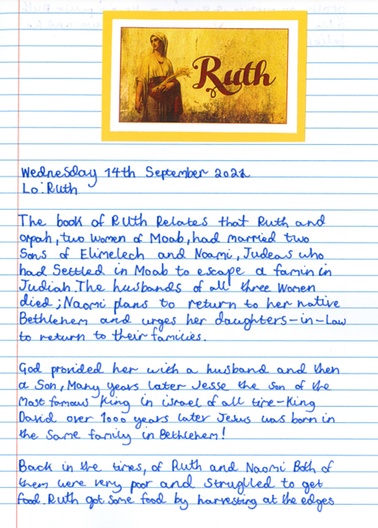 Ruth
Wednesday 14th September 2022
Lo: Ruth
The book of RUth Relates that Ruth and
orpah, two women of Moab, had married two
Sons of Elimelech and Noami, Judeas who
had Settled in Moab to escape a famin in
Judiah. The husbands of all three Women
died; Naomi plans to return to her native
Bethlehem and urges her daughters-in-Law
to return to their families.
God provided her with a husband and then
a Son, Many years later Jesse the son of the
Most famous King in israel of all time-King
David over 1000 years later Jesus was born in
the Same family in Bethlehem!
Back in the times, of Ruth and Naomi Both of
them were very poor and struglled to get
food. Ruth got some food by harvesting at the edges